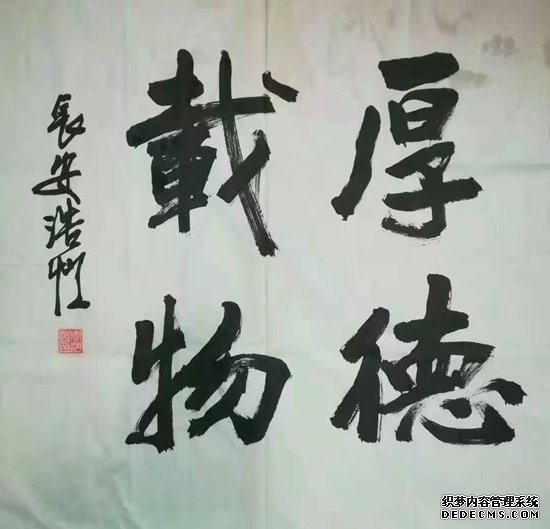 厚德
載物
長安浩恺
织梦内容管理系统
DEDECMS.COM